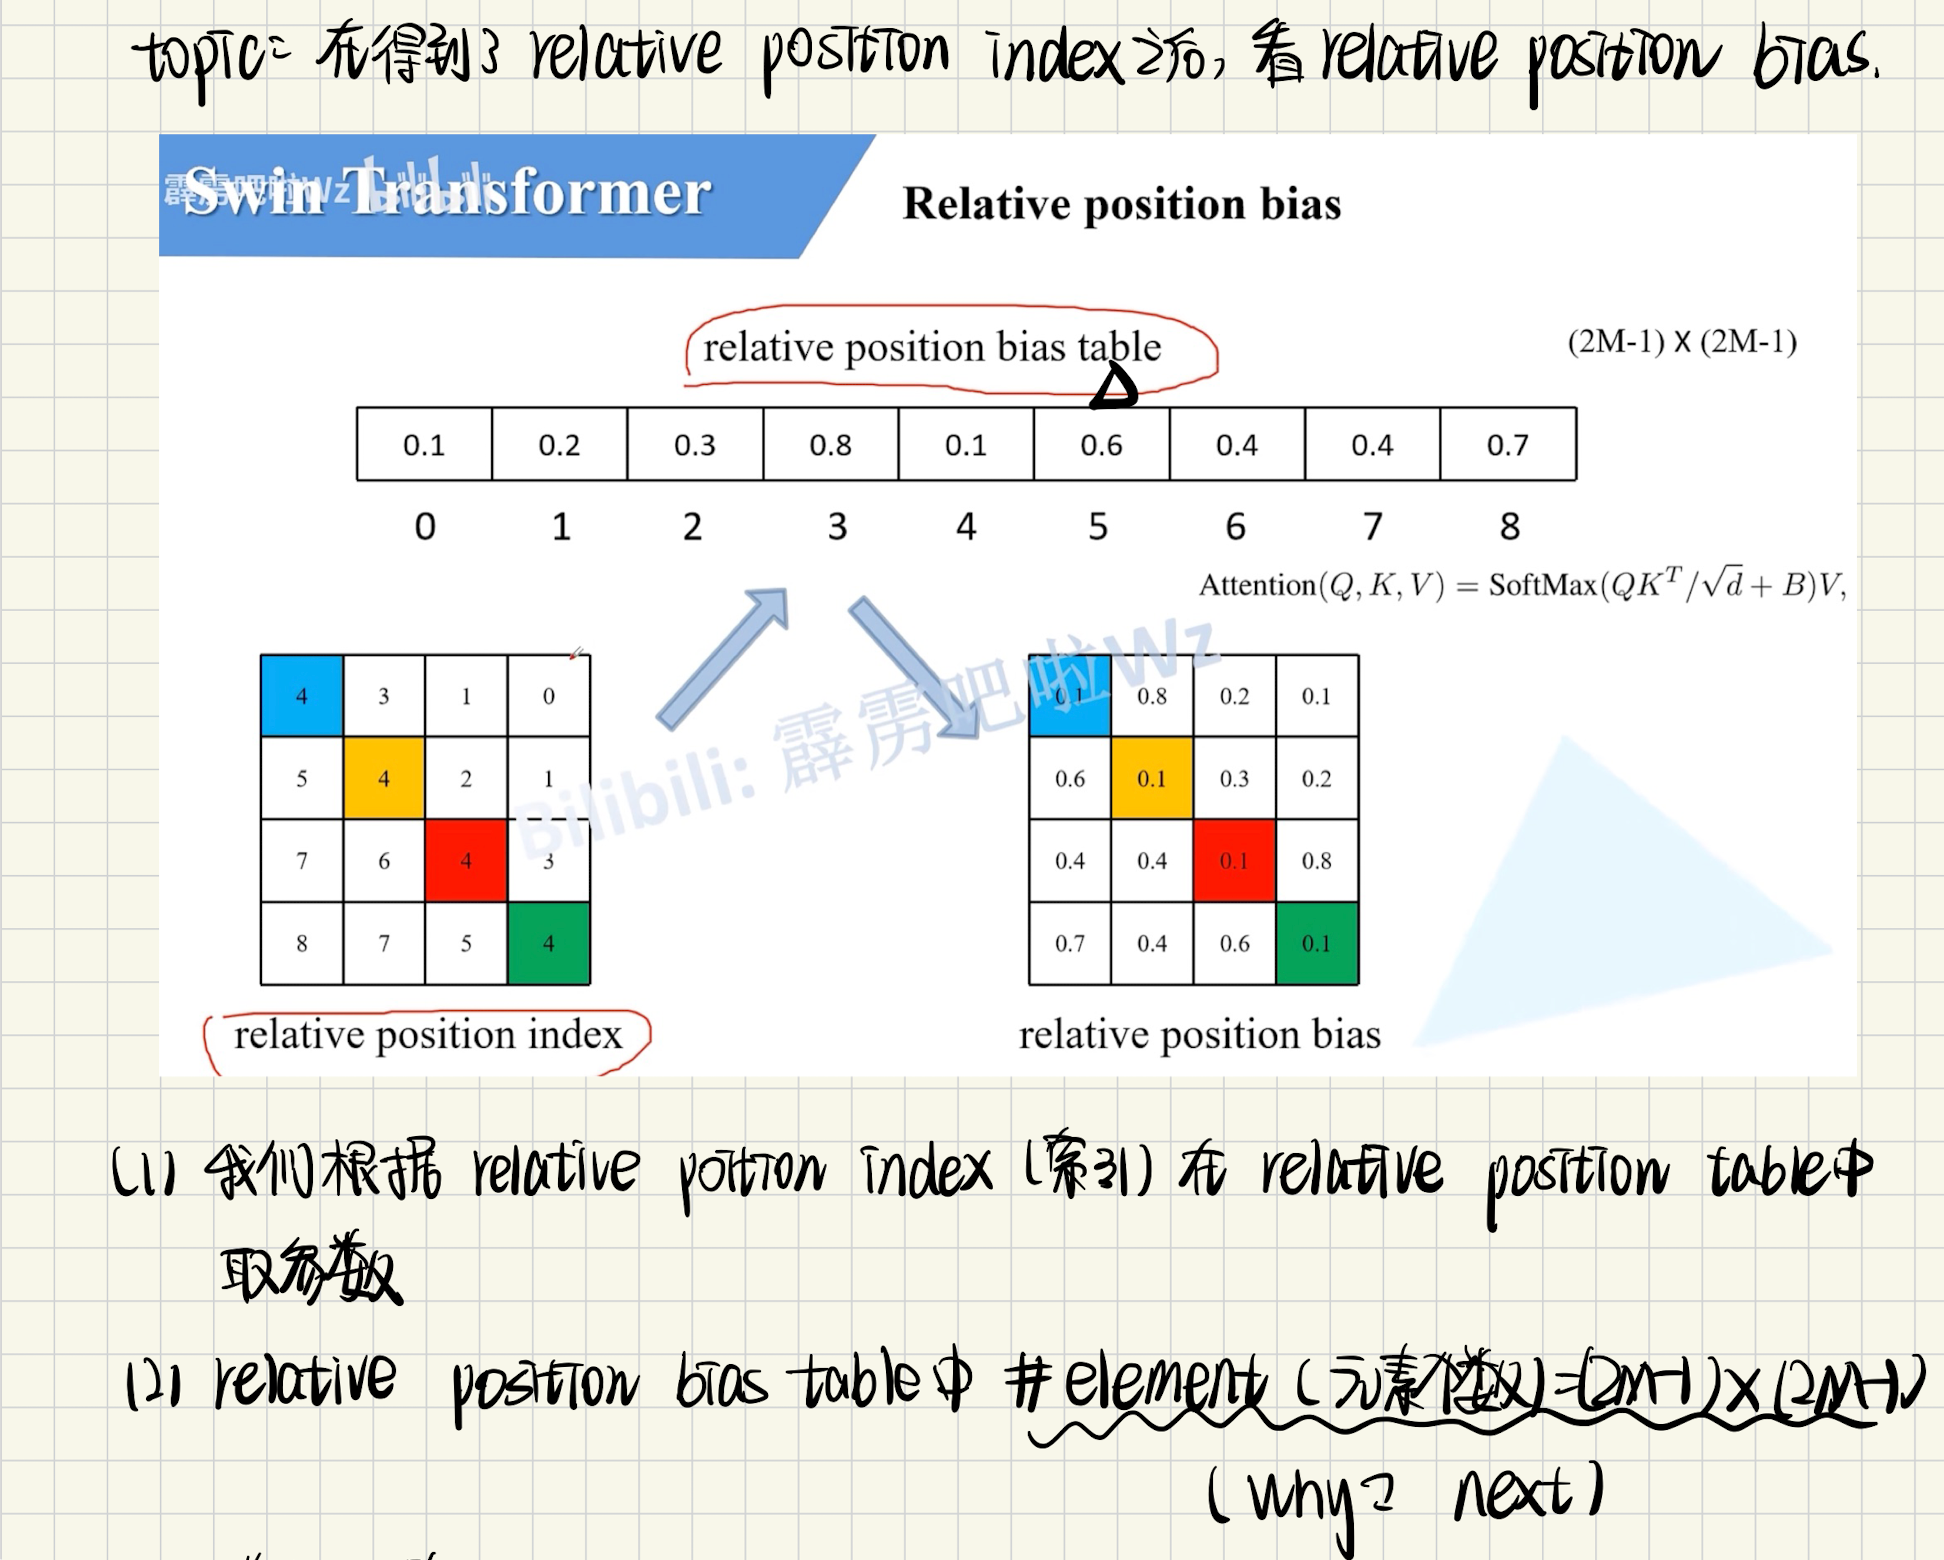 topic: 在得到了 relative position index之后, 看 relative position bias.
霹雳吧啦Wz bilibili
Swin Transformer
Relative position bias
relative position bias table
(2M-1) X (2M-1)
0.1 0.2 0.3 0.8 0.1 0.6 0.4 0.4 0.7
0 1 2 3 4 5 6 7 8
Attention(Q, K, V) = SoftMax(QK^T/√d + B)V,
4 3 1 0
5 4 2 1
7 6 4 3
8 7 5 4
relative position index
0.1 0.8 0.2 0.1
0.6 0.1 0.3 0.2
0.4 0.4 0.1 0.8
0.7 0.4 0.6 0.1
relative position bias
Bilibili: 霹雳吧啦Wz
(1) 我们根据 relative poition index (索引) 在 relative position table中
取参数
(2) relative position bias table中 #element (元素个数)=(2M-1)×(2M-1)
(why? next)